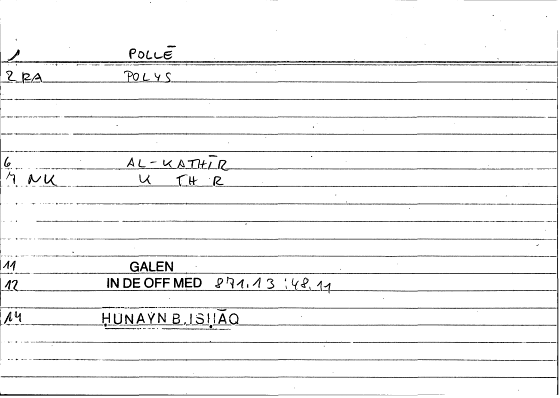 1 POLLĒ
2 RA POLYS
6 AL-KATHĪR
7 NK K TH R
11 GALEN
12 IN DE OFF MED 871.13 :48.11
14 ḤUNAYN B. ISḤĀQ